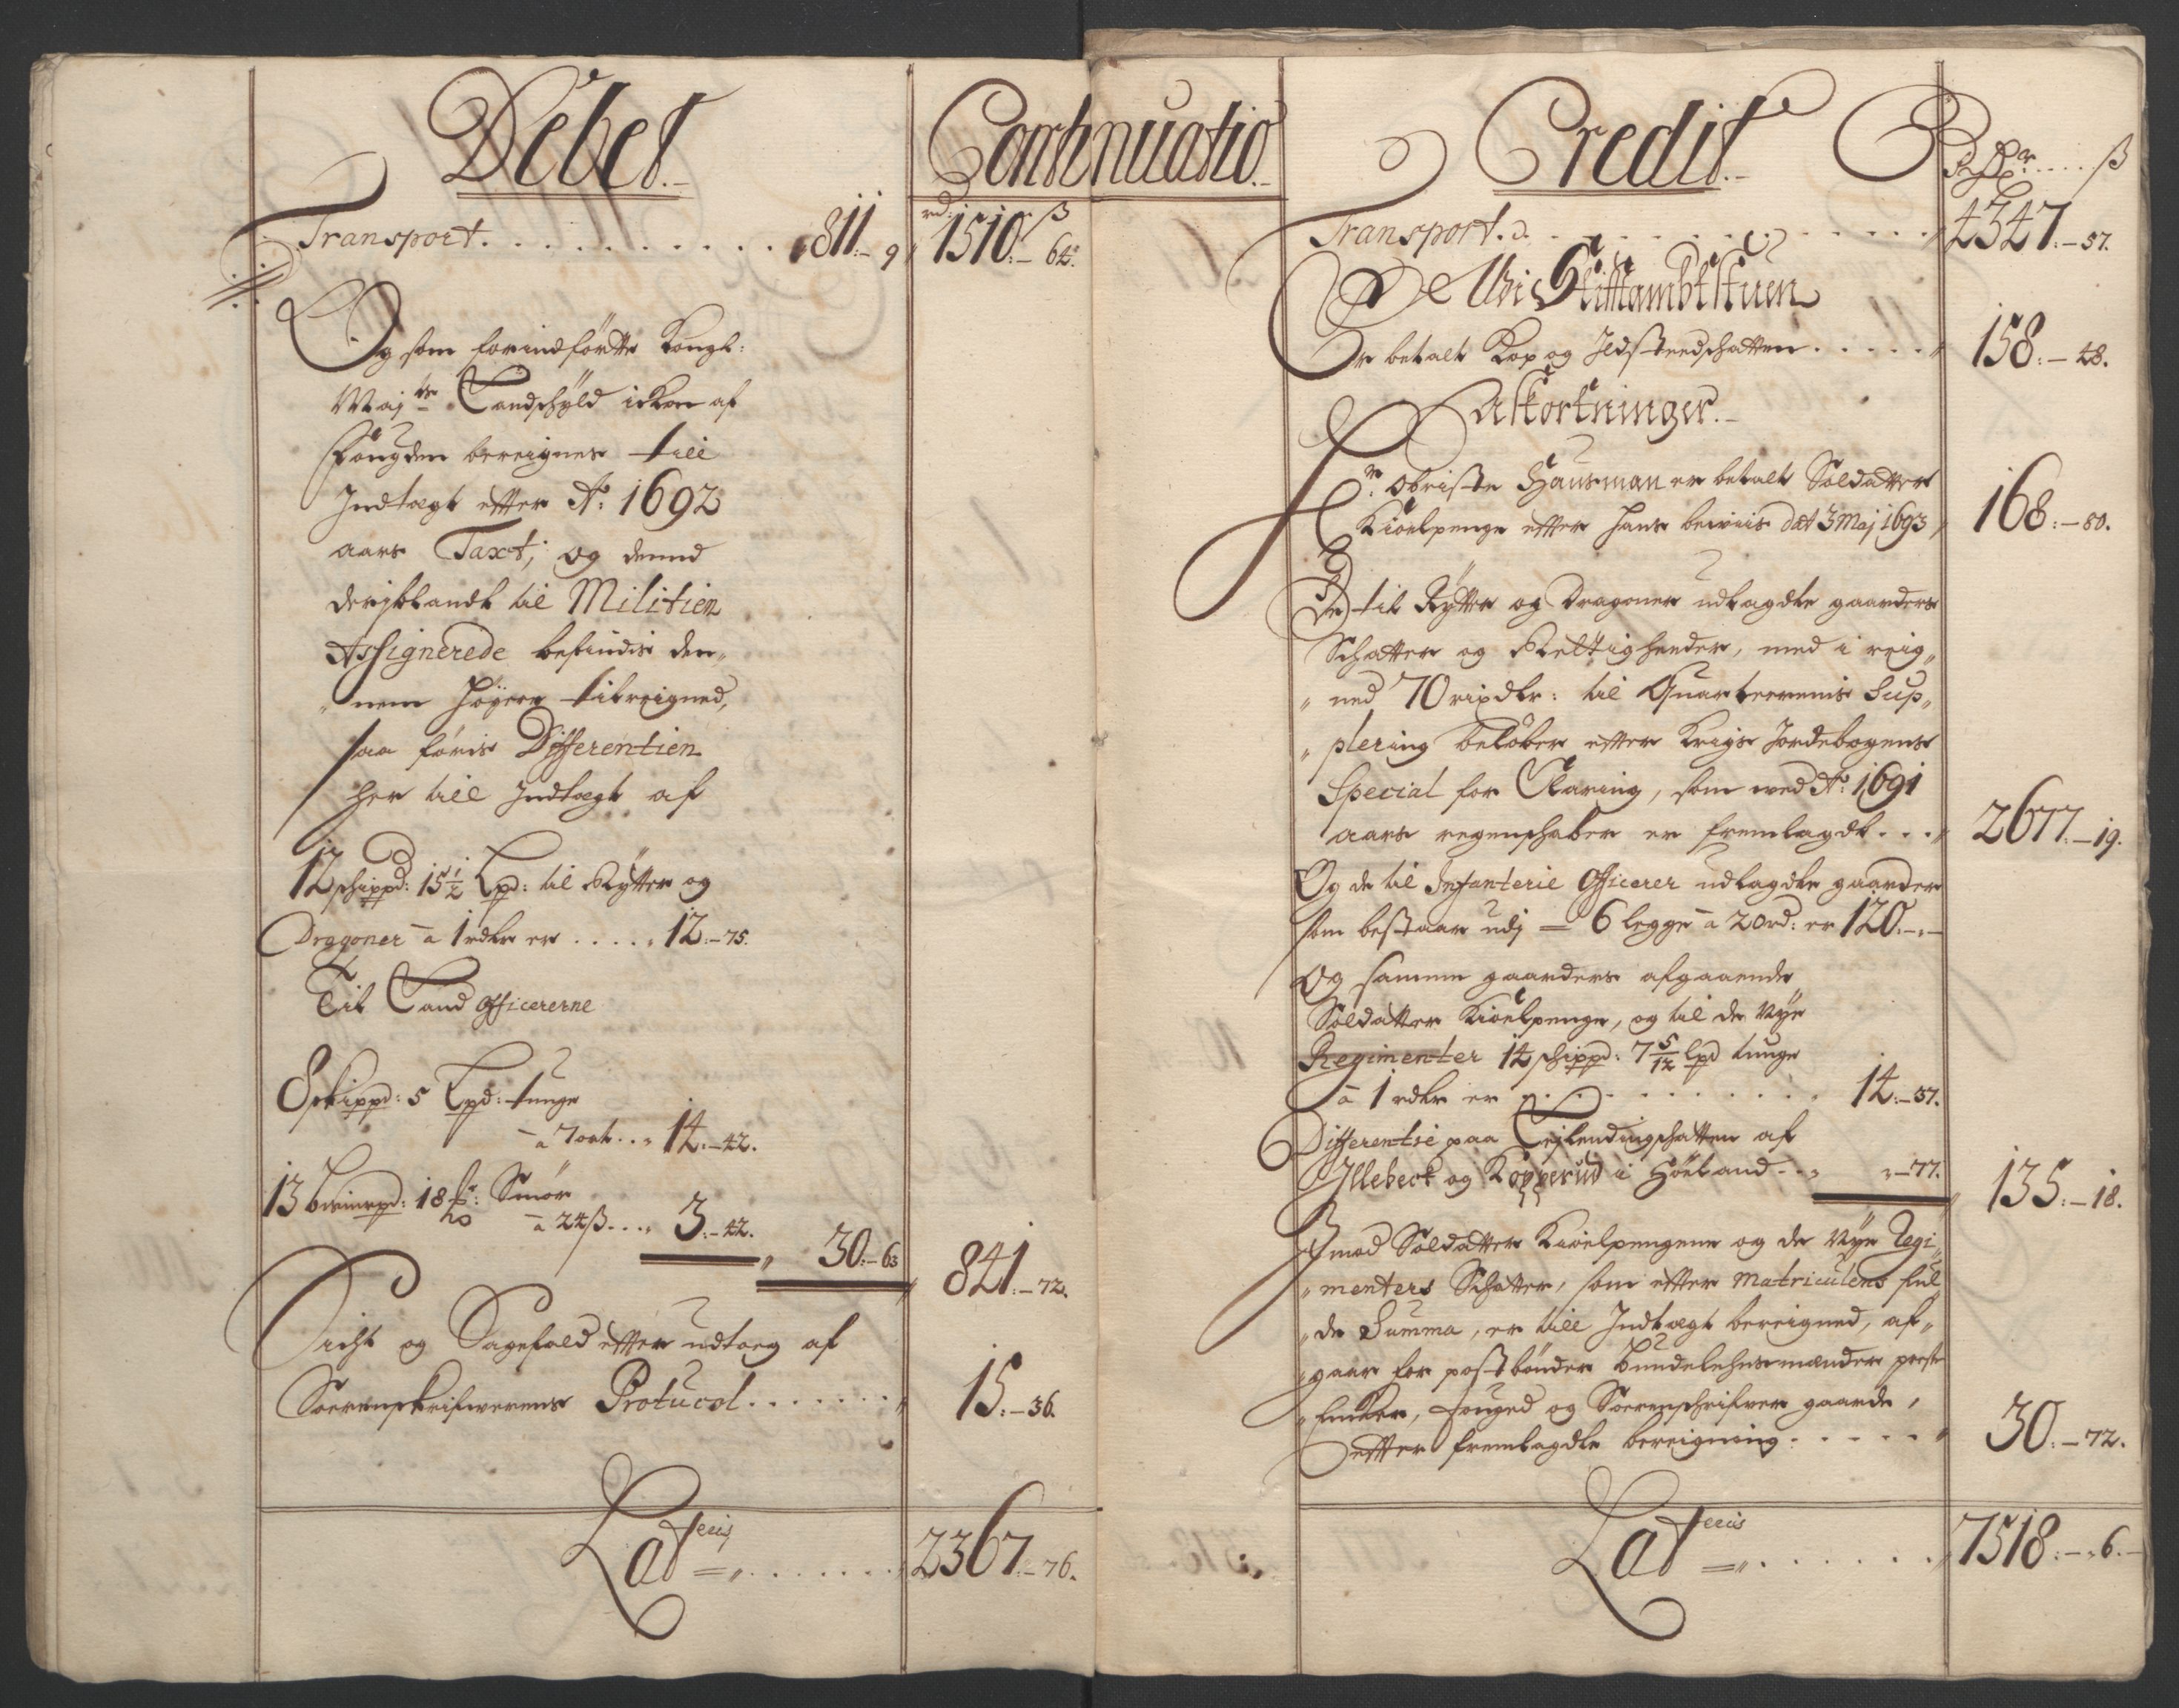 Debet.
Continuatio.
rd: ß
Transport. . . . . . . . . . . 811:–9 1510:–64.
Og som forindførtte Kongl:
Maj:ts Landschyld icke af
Fougden bereignes till
Indtægt etter Ao: 1692
aars Taxt; og dennd
deriblandt til Militien
Assignerede befindis den„
„nem høyere tilreigned,
saa føris Differentien
her till Indtægt af
12 schippd: 15½ Lpd: til Rytter og
Dragoner a 1 rdlr er . . . . . 12.–75.
Til Land Officererne
8 skippd: 5 Lpd: tunge
a 7 ort. . . 14.–42.
13 bismrpd: 18 Smör
a 24 ß. . . . 3.–42.
30:–63
841:–72.
Sicht og Sagefald etter udtoeg af
Soerenskrifwerens Protucol. . . . . . . 15.–36.
Lateris . . . . . . . 2367.–76.
Credit.
Rdr. . . . . ß
Transport. . . . . . . . . . . 4347.–57.
De Udi Stiftambtstuen
Er betalt Kop og Ildstædschatten . . . . . 158:–48.
Afkortninger.
Hr. Obriste Hausman er betalt Soldatter
Kioelpenge etter hans beviis dat 3 Maj 1693 168:–80.
De til Rytter og Dragoner udlagdte gaarders
Schatter og Rettigheeder, med i reig„
„ned 70 rixdlr: til Quarterernis Sup„
„plering beløber etter Krigs Jordebogens
Special for Claring, som wed Ao: 1691
aars regenschaber er fremlagdt. . . 2677.–19.
Og de til Infanterie Officerer udlagdte gaarder
som bestaar udj = 6 legge a 20 rd: er 120.–.–
Og samme gaarders afgaaende
Soldatter Kioelpenge, og til de Nye
Regimenter 14 schippd: 7 5/12 lpd tunge
a 1 rdlr er . . . . . . . . . . . 14.–37.
Differentie paa Lejlendingschatten af
Illebeck og Kopperud i Höeland . . . „–77.
135.–18.
Imod Soldatter Kioelpengene og de Nye Regi„
„menters Schatter, som etter Matriculens ful„
„de Summa, er till Indtægt bereigned, af„
„gaar for postbönder Bundelehnsmænder preste
„Encker, Fouged og Soerenschrifver gaarde,
etter fremlagdte bereigning. . . . . . 30.–72.
Lateris . . . . . . 7518.–„6.